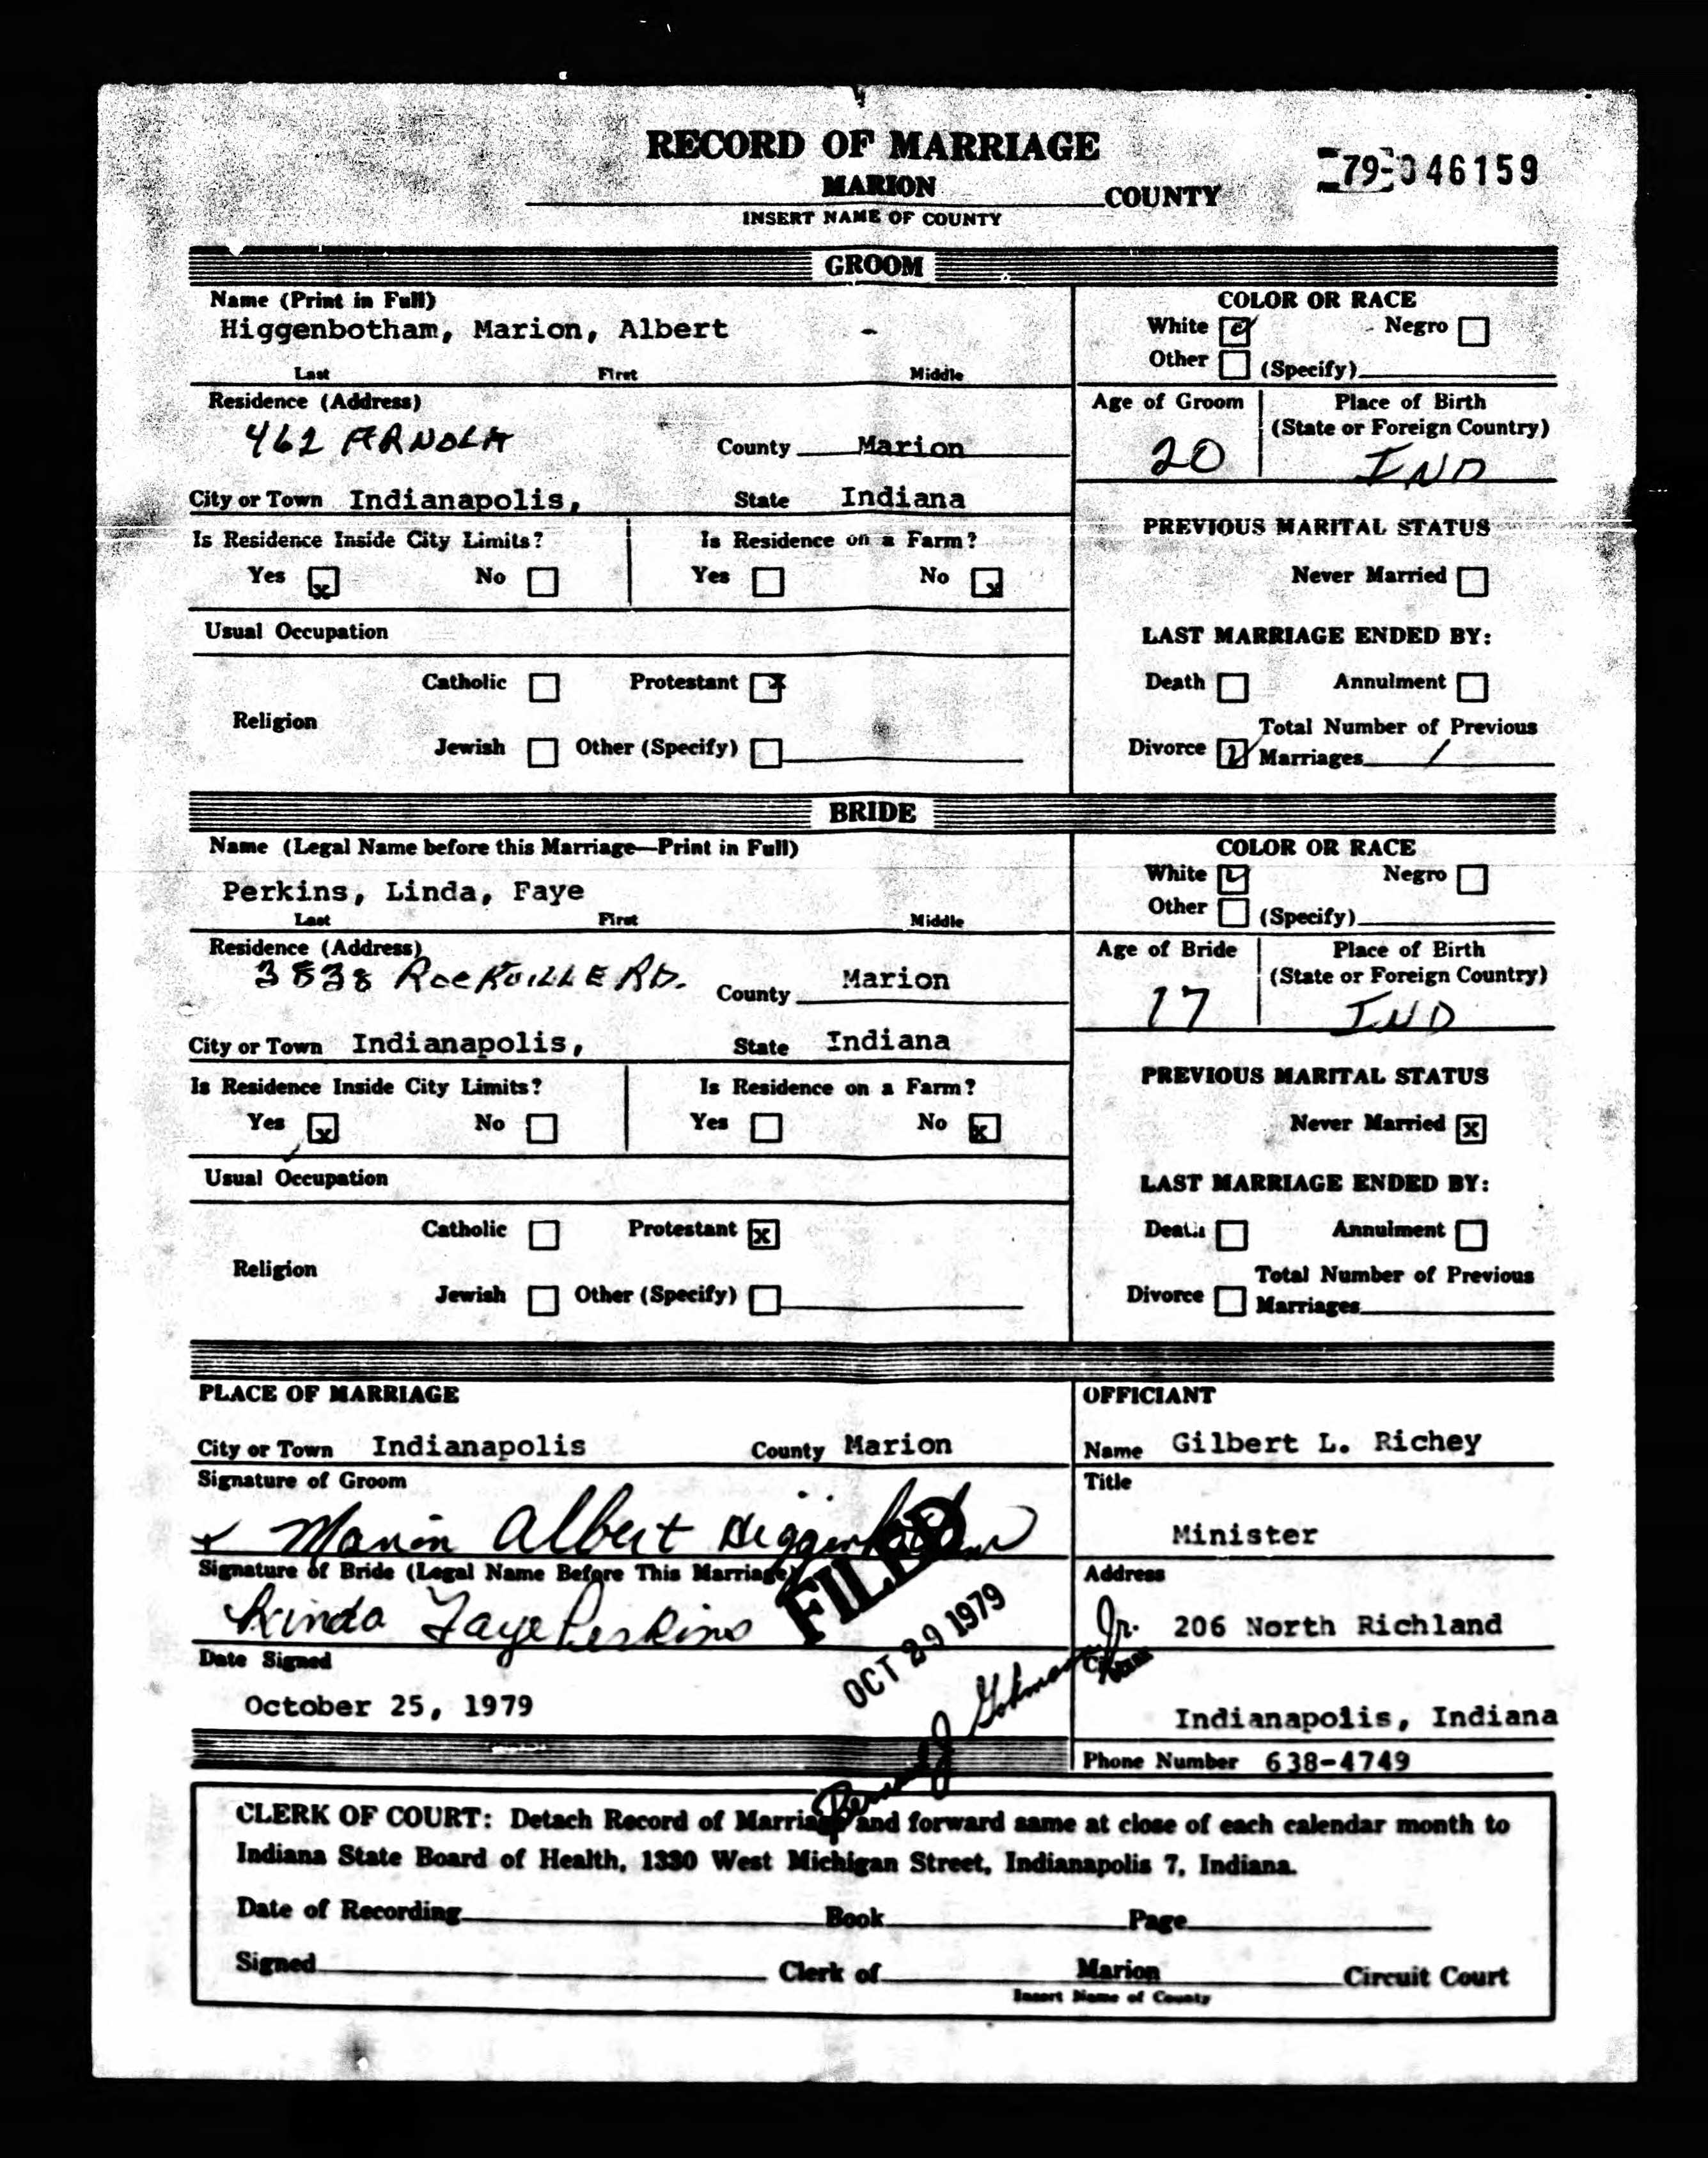 RECORD OF MARRIAGE
79-046159
MARION COUNTY
INSERT NAME OF COUNTY
GROOM
Name (Print in Full)
Higgenbotham, Marion, Albert -
Last First Middle
COLOR OR RACE
White Negro
Other (Specify)
Residence (Address)
462 ARNOLA
County Marion
Age of Groom
20
Place of Birth
(State or Foreign Country)
IND
City or Town Indianapolis, State Indiana
Is Residence Inside City Limits? Is Residence on a Farm?
Yes x No Yes No x
PREVIOUS MARITAL STATUS
Never Married
Usual Occupation
LAST MARRIAGE ENDED BY:
Catholic Protestant x
Religion
Jewish Other (Specify)
Death Annulment
Total Number of Previous
Divorce Marriages 1
BRIDE
Name (Legal Name before this Marriage—Print in Full)
Perkins, Linda, Faye
Last First Middle
COLOR OR RACE
White Negro
Other (Specify)
Residence (Address)
3838 ROCKVILLE RD.
County Marion
Age of Bride
17
Place of Birth
(State or Foreign Country)
IND
City or Town Indianapolis, State Indiana
Is Residence Inside City Limits? Is Residence on a Farm?
Yes x No Yes No x
PREVIOUS MARITAL STATUS
Never Married x
Usual Occupation
LAST MARRIAGE ENDED BY:
Catholic Protestant x
Religion
Jewish Other (Specify)
Death Annulment
Total Number of Previous
Divorce Marriages
PLACE OF MARRIAGE
City or Town Indianapolis County Marion
Signature of Groom
x Marion Albert Higgenbotham
Signature of Bride (Legal Name Before This Marriage)
Linda Faye Perkins
Date Signed
October 25, 1979
FILED
OCT 29 1979
OFFICIANT
Name Gilbert L. Richey
Title
Minister
Address
206 North Richland
City
Indianapolis, Indiana
Phone Number 638-4749
Gohmann Jr.
CLERK OF COURT: Detach Record of Marriage and forward same at close of each calendar month to
Indiana State Board of Health, 1330 West Michigan Street, Indianapolis 7, Indiana.
Date of Recording Book Page
Signed Clerk of Marion Circuit Court
Insert Name of County